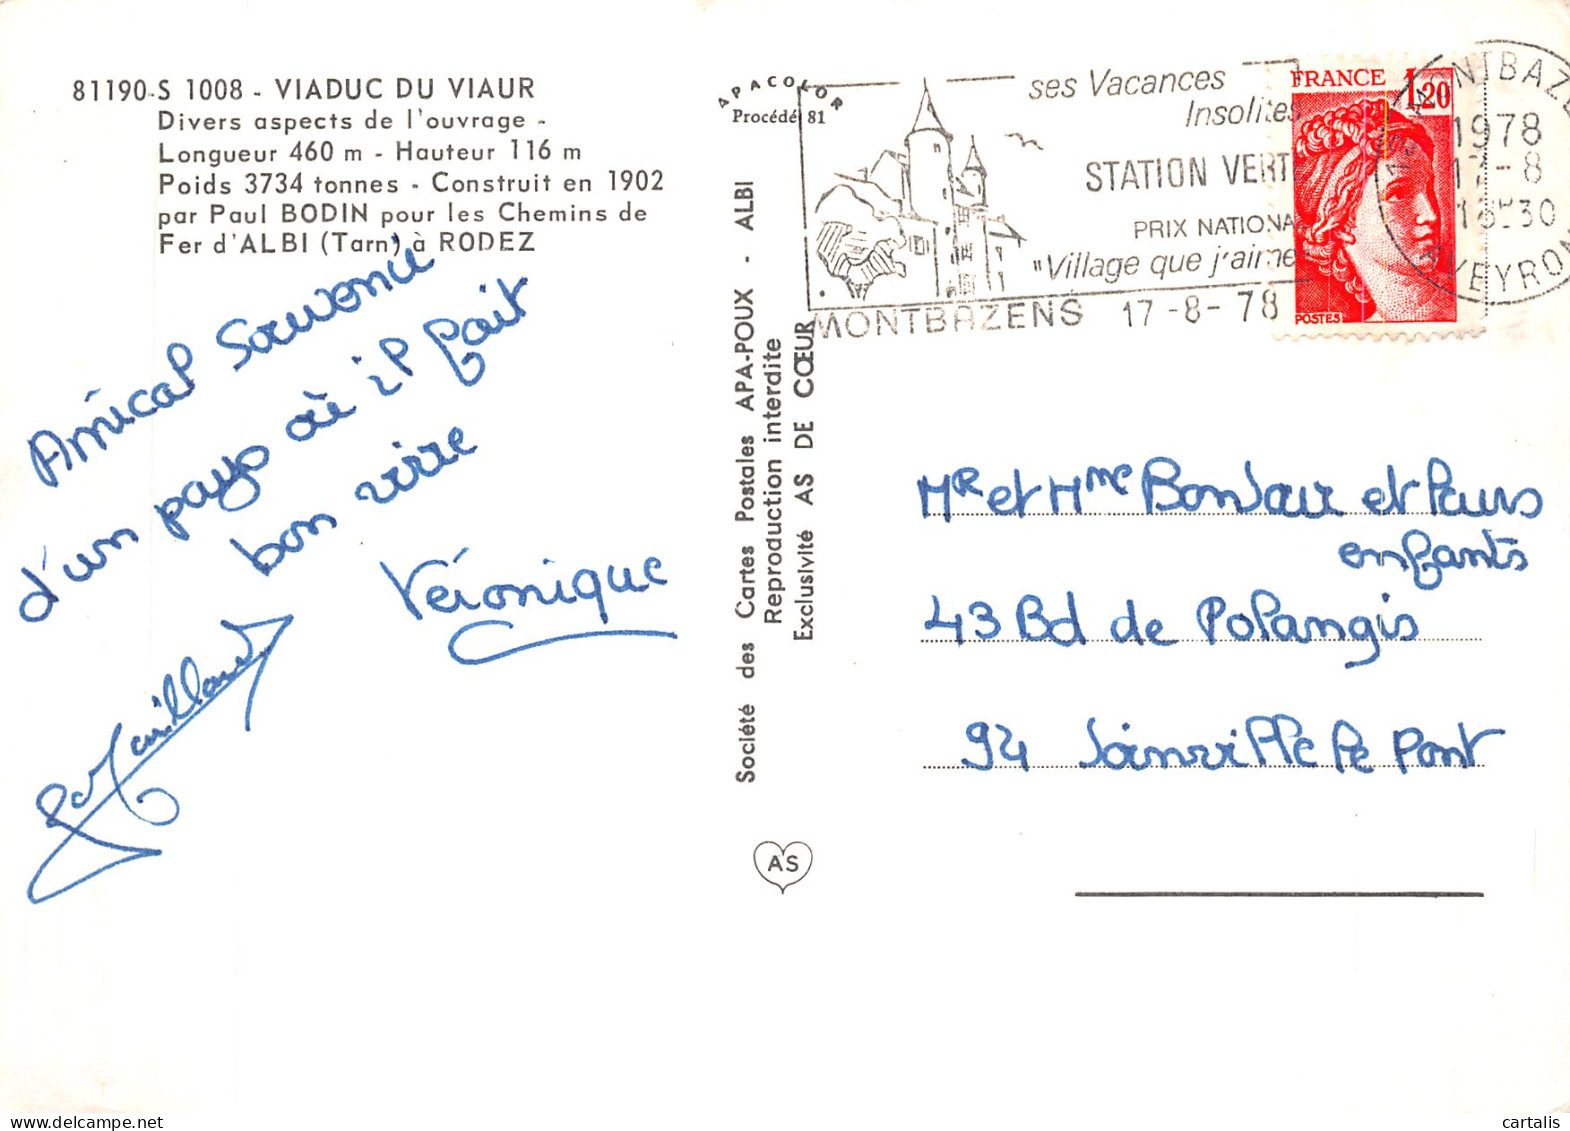 81190-S 1008 - VIADUC DU VIAUR
Divers aspects de l'ouvrage -
Longueur 460 m - Hauteur 116 m
Poids 3734 tonnes - Construit en 1902
par Paul BODIN pour les Chemins de
Fer d'ALBI (Tarn) à RODEZ
Amical Souvenir
d'un pays où il fait
bon vivre
Véronique
APACOLOR
Procédé 81
Société des Cartes Postales APA-POUX - ALBI
Reproduction interdite
Exclusivité AS DE CŒUR
AS
ses Vacances
Insolites
STATION VERTE
PRIX NATIONAL
"Village que j'aime
MONTBAZENS 17-8-78
FRANCE 1,20
POSTES
1978
17-8
AVEYRON
Mr et Mme Bonjour et leurs
enfants
43 Bd de Polangis
94 Joinville le Pont
cartalis